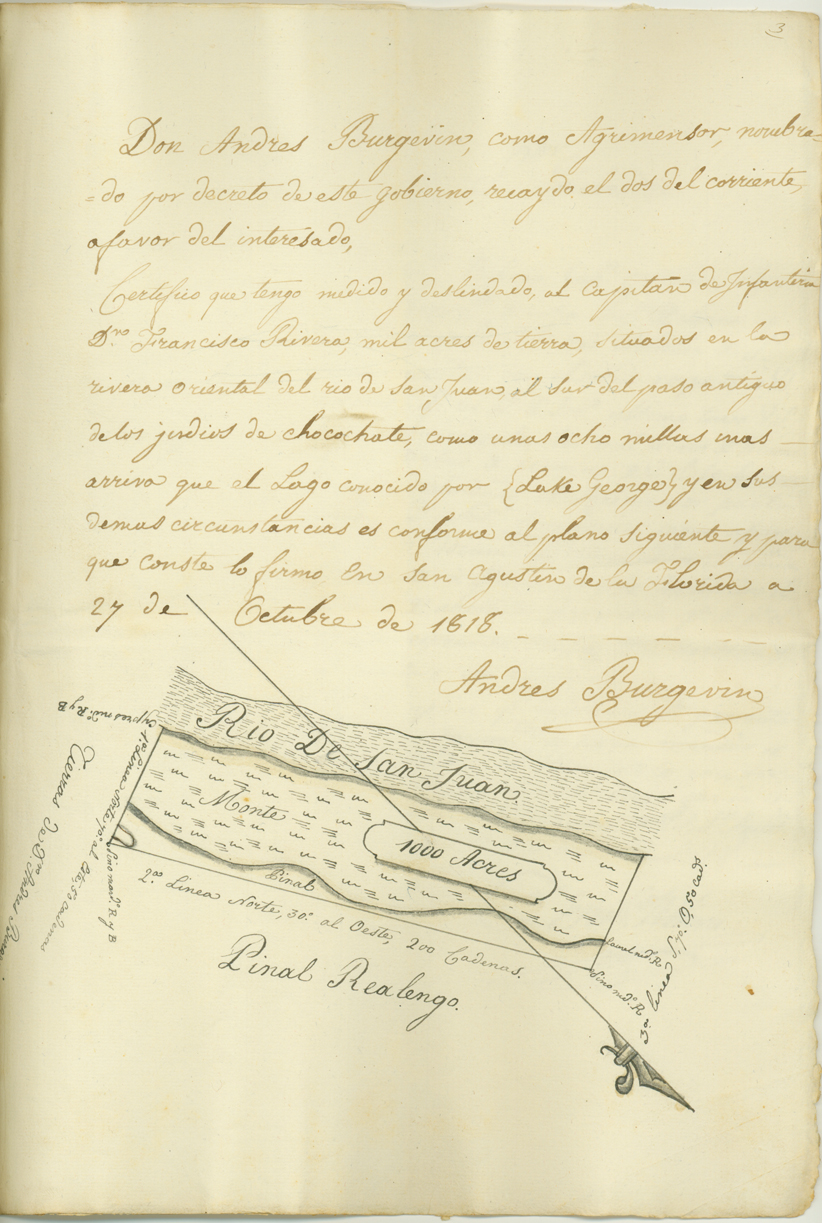 3
Don Andres Burgevin, como Agrimensor, nombra=
=do por decreto de este gobierno, recaydo el dos del corriente,
a favor del interesado,
Certifico que tengo medido y deslindado, al Capitan de Infanteria
Dn. Francisco Rivera, mil acres de tierra, situados en la
rivera oriental del rio de San Juan, al sur del paso antiguo
de los jndios de chocochate, como unas ocho millas mas
arriva que el Lago conocido por {Lake George} y en sus
demas circunstancias es conforme al plano siguiente y para
que conste lo firmo En San Agustin de la Florida a
27 de Octubre de 1818.
Andres Burgevin
Rio De San Juan
Cypres md.º R y B
Monte
1000 Acres
1.ª Linea Norte 70.º al Este, 50 cadenas
Pino mdº R y B
Tierras De Dn.
Pinal
2.ª Linea Norte, 30.º al Oeste, 200 Cadenas.
Laurel md.º R.
Pino md.º R
3.ª linea S. 70.º O, 50 cads.
Pinal Realengo.